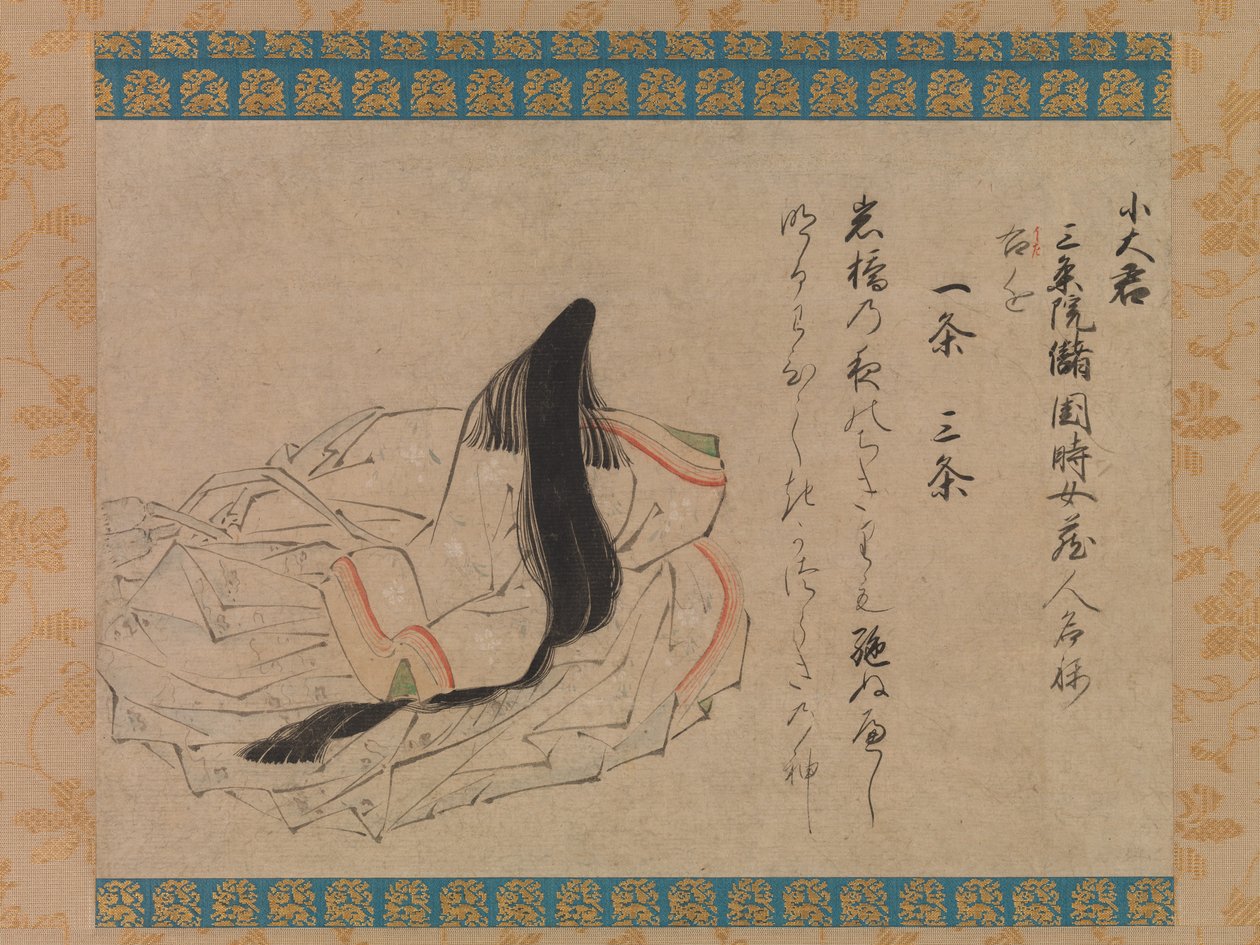 小大君
三条院儲時女蔵人名称
右近
一条 三条
岩橋乃夜のちきりも絶ぬへし
明るわひしきかつらきの神